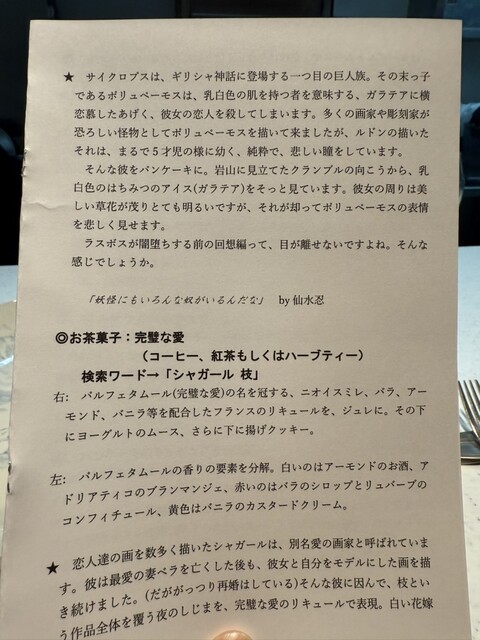 ★ サイクロプスは、ギリシャ神話に登場する一つ目の巨人族。その末っ子
であるポリュペーモスは、乳白色の肌を持つ者を意味する、ガラテアに横
恋慕したあげく、彼女の恋人を殺してしまいます。多くの画家や彫刻家が
恐ろしい怪物としてポリュペーモスを描いて来ましたが、ルドンの描いた
それは、まるで5才児の様に幼く、純粋で、悲しい瞳をしています。
そんな彼をパンケーキに。岩山に見立てたクランブルの向こうから、乳
白色のはちみつのアイス(ガラテア)をそっと見ています。彼女の周りは美
しい草花が茂りとても明るいですが、それが却ってポリュペーモスの表情
を悲しく見せます。
ラスボスが闇堕ちする前の回想編って、目が離せないですよね。そんな
感じでしょうか。
「妖怪にもいろんな奴がいるんだな」 by仙水忍
◎お茶菓子：完璧な愛
（コーヒー、紅茶もしくはハーブティー）
検索ワード→「シャガール 枝」
右: パルフェタムール(完璧な愛)の名を冠する、ニオイスミレ、バラ、アー
モンド、バニラ等を配合したフランスのリキュールを、ジュレに。その下
にヨーグルトのムース、さらに下に揚げクッキー。
左: パルフェタムールの香りの要素を分解。白いのはアーモンドのお酒、ア
ドリアティコのブランマンジェ、赤いのはバラのシロップとリュバーブの
コンフィチュール、黄色はバニラのカスタードクリーム。
★ 恋人達の画を数多く描いたシャガールは、別名愛の画家と呼ばれていま
す。彼は最愛の妻ベラを亡くした後も、彼女と自分をモデルにした画を描
き続けました。(だががっつり再婚はしている)そんな彼に因んで、枝とい
う作品全体を覆う夜のしじまを、完璧な愛のリキュールで表現。白い花嫁